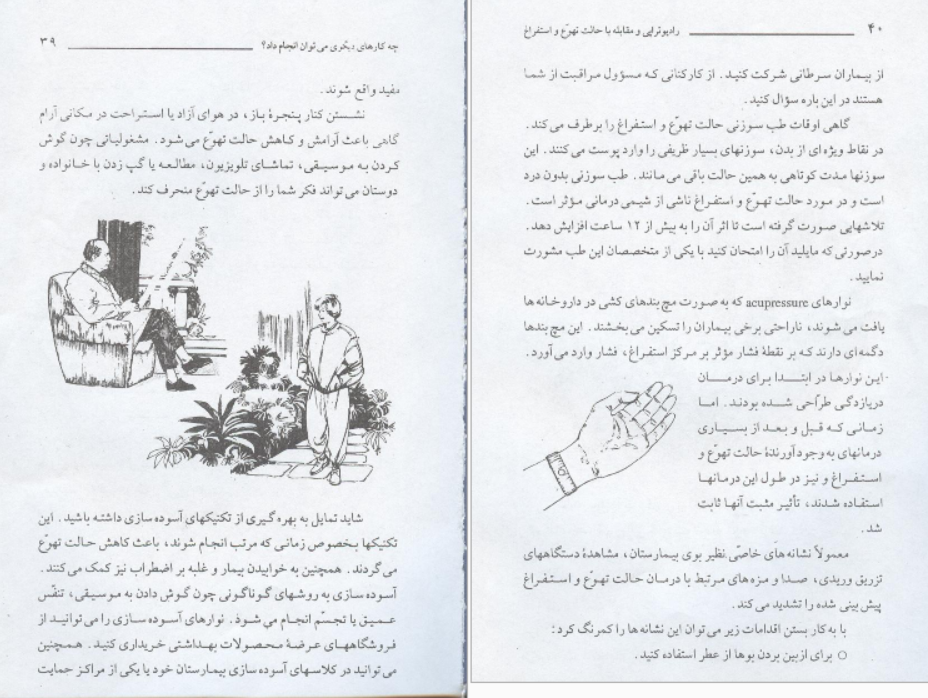 چه کارهای دیگری می‌توان انجام داد؟ ۳۹
مفید واقع شوند.
نشستن کنار پنجرهٔ باز، در هوای آزاد یا استراحت در مکانی آرام
گاهی باعث آرامش و کاهش حالت تهوّع می‌شود. مشغولیاتی چون گوش
کردن به موسیقی، تماشای تلویزیون، مطالعه یا گپ زدن با خانواده و
دوستان می‌تواند فکر شما را از حالت تهوّع منحرف کند.
شاید تمایل به بهره‌گیری از تکنیکهای آسوده‌سازی داشته باشید. این
تکنیکها بخصوص زمانی که مرتب انجام شوند، باعث کاهش حالت تهوّع
می‌گردند. همچنین به خوابیدن بیمار و غلبه بر اضطراب نیز کمک می‌کنند.
آسوده‌سازی به روشهای گوناگونی چون گوش دادن به موسیقی، تنفّس
عمیق یا تجسّم انجام می‌شود. نوارهای آسوده‌سازی را می‌توانید از
فروشگاههای عرضهٔ محصولات بهداشتی خریداری کنید. همچنین
می‌توانید در کلاسهای آسوده‌سازی بیمارستان خود یا یکی از مراکز حمایت
۴۰ رادیوتراپی و مقابله با حالت تهوّع و استفراغ
از بیماران سرطانی شرکت کنید. از کارکنانی که مسؤول مراقبت از شما
هستند در این باره سؤال کنید.
گاهی اوقات طب سوزنی حالت تهوّع و استفراغ را برطرف می‌کند.
در نقاط ویژه‌ای از بدن، سوزنهای بسیار ظریفی را وارد پوست می‌کنند. این
سوزنها مدت کوتاهی به همین حالت باقی می‌مانند. طب سوزنی بدون درد
است و در مورد حالت تهوّع و استفراغ ناشی از شیمی درمانی مؤثر است.
تلاشهایی صورت گرفته است تا اثر آن را به بیش از ۱۲ ساعت افزایش دهد.
درصورتی که مایلید آن را امتحان کنید با یکی از متخصصان این طب مشورت
نمایید.
نوارهای acupressure که به صورت مچ‌بندهای کشی در داروخانه‌ها
یافت می‌شوند، ناراحتی برخی بیماران را تسکین می‌بخشند. این مچ‌بندها
دگمه‌ای دارند که بر نقطهٔ فشار مؤثر بر مرکز استفراغ، فشار وارد می‌آورد.
این نوارها در ابتدا برای درمان
دریازدگی طرّاحی شده بودند. اما
زمانی که قبل و بعد از بسیاری
درمانهای به وجودآورندهٔ حالت تهوّع و
استفراغ و نیز در طول این درمانها
استفاده شدند، تأثیر مثبت آنها ثابت
شد.
معمولاً نشانه‌های خاصّی نظیر بوی بیمارستان، مشاهدهٔ دستگاههای
تزریق وریدی، صدا و مزه‌های مرتبط با درمان حالت تهوّع و استفراغ
پیش‌بینی شده را تشدید می‌کند.
با به کار بستن اقدامات زیر می‌توان این نشانه‌ها را کمرنگ کرد:
○ برای ازبین بردن بوها از عطر استفاده کنید.